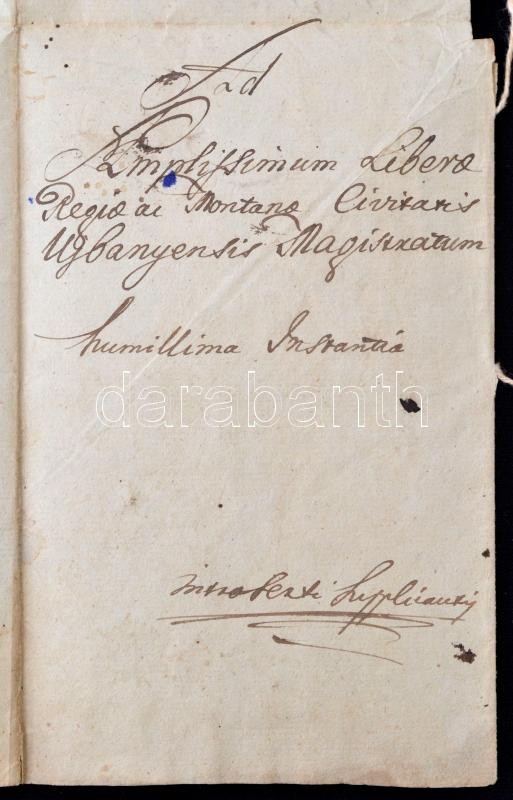 Ad
Amplissimum Liberæ
Regiæ ac Montanæ Civitatis
Ujbanyensis Magistratum
humillima Instantia
darabanth
introserti Supplicantis